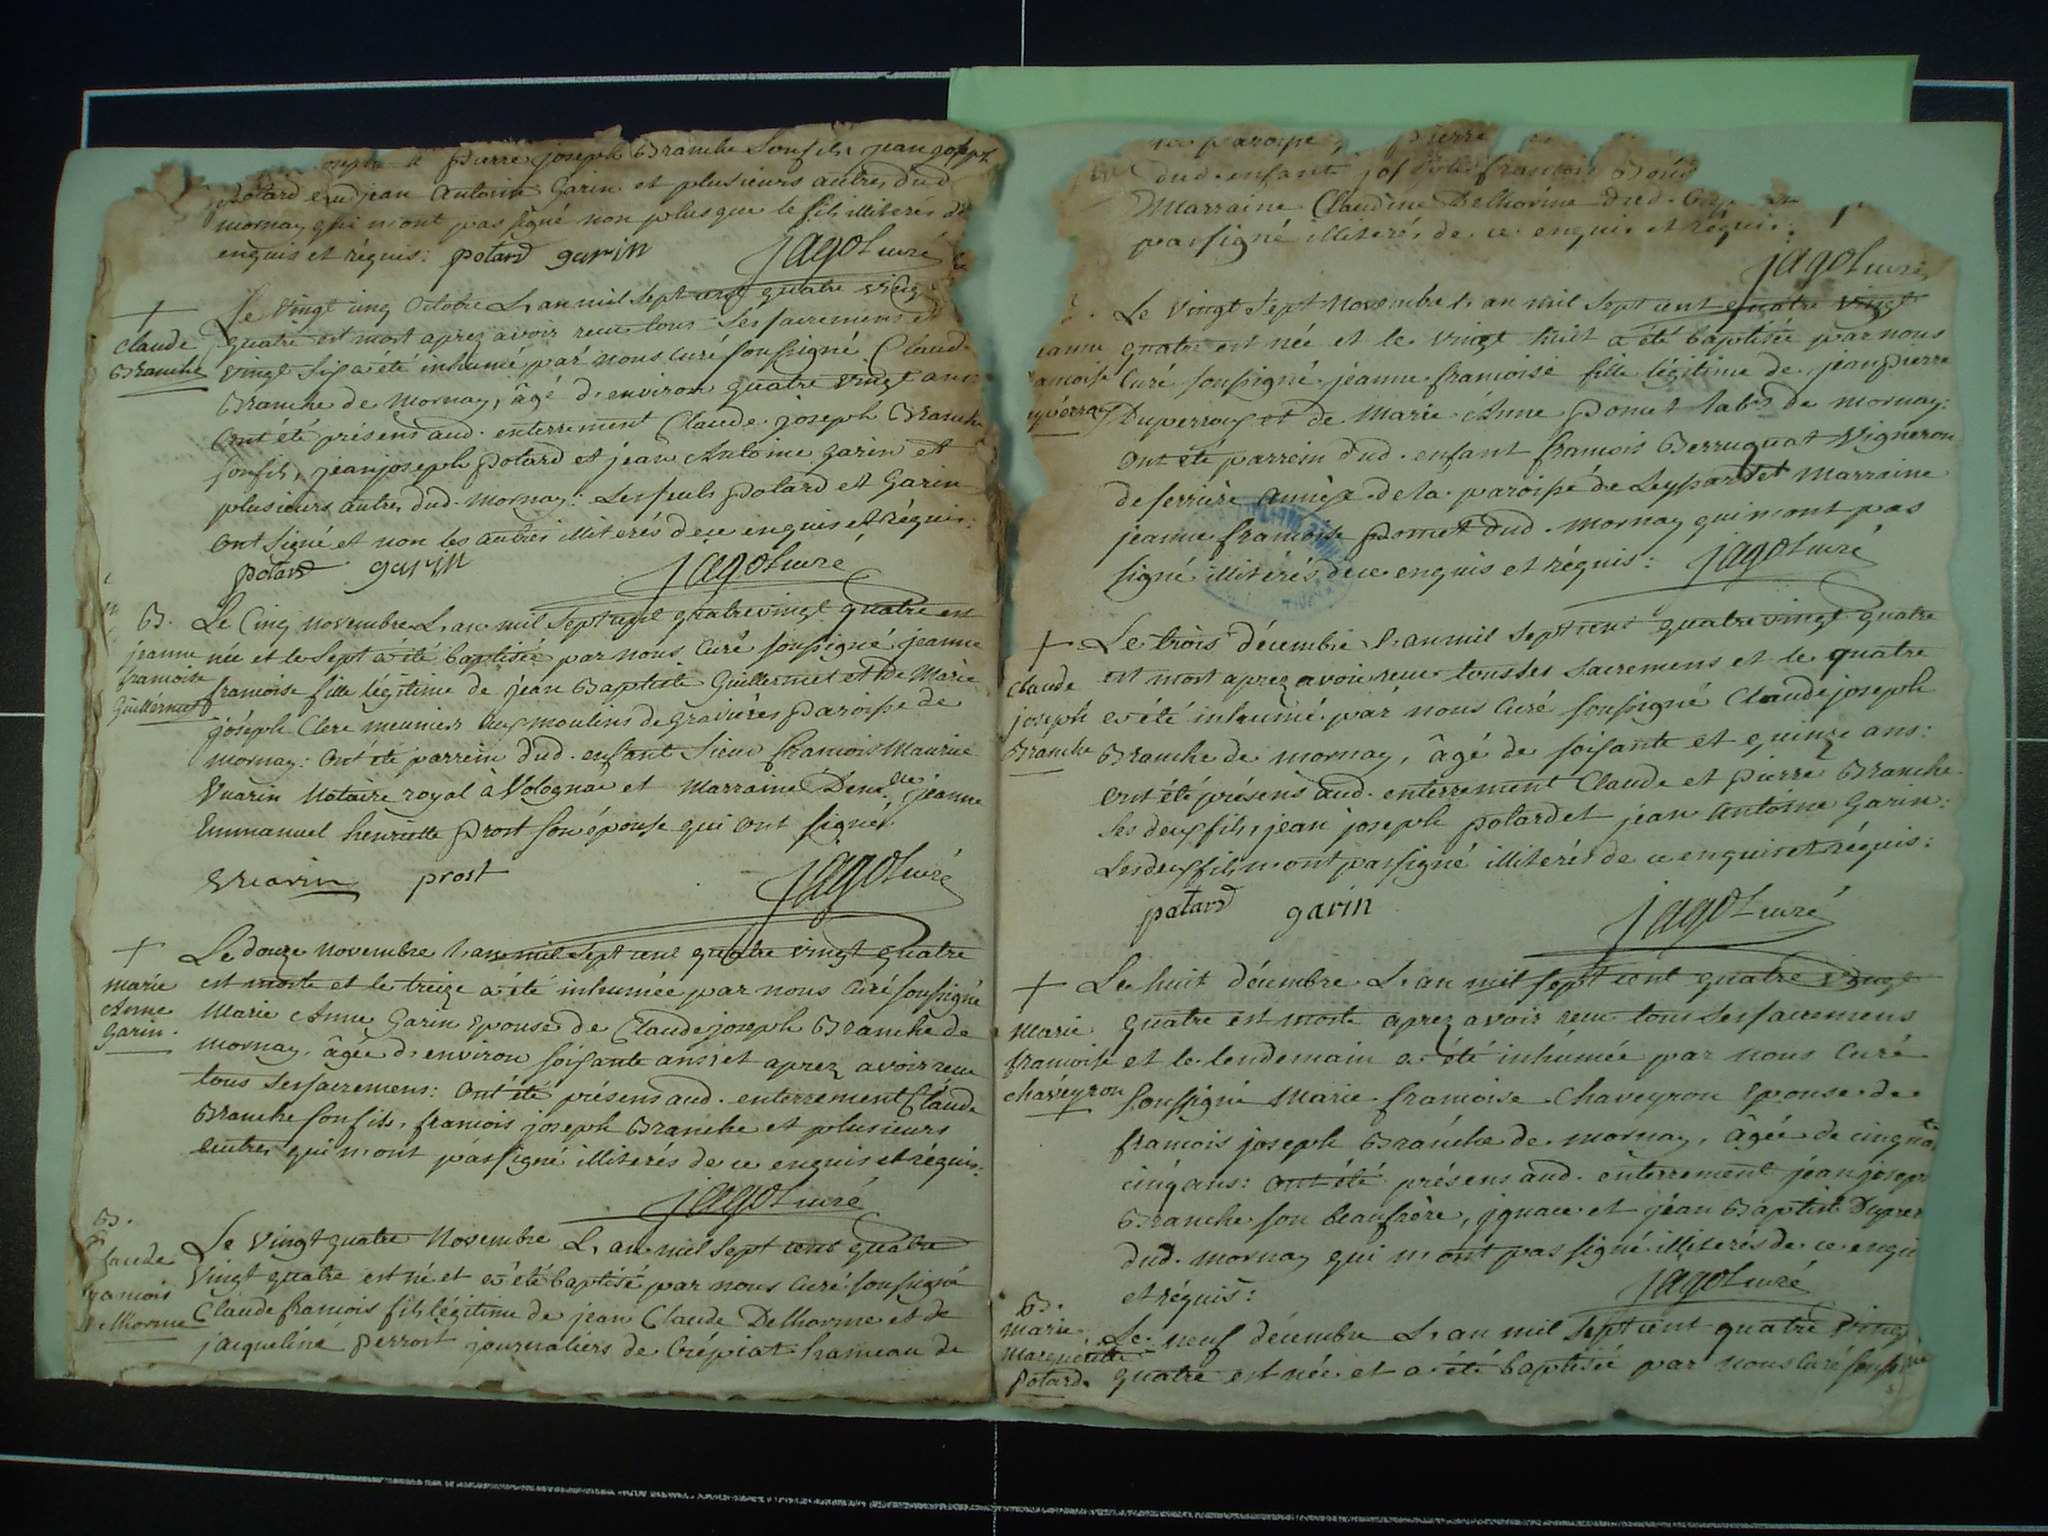 joseph et pierre joseph Branche son fils, jean joseph
potard eud jean Antoine Garin et plusieurs autres dud
mornay qui n'ont pas signé non plus que le fils illiterés de
enquis et réquis: potard garin jagot curé
+
claude
Branche
Le vingt cinq Octobre L'an mil sept cent quatre vingt
quatre est mort aprez avoir recu tous ses sacremens et
vingt six a été inhumé par nous Curé soussigné Claude
Branche de Mornay, âgé d'environ quatre vingt ans
Ont été présens aud. enterrement Claude joseph Branche
son fils, jean joseph potard et jean Antoine Garin et
plusieurs autres dud. mornay: les seuls potard et Garin
Ont signé et non les autres illiterés de ce enquis et réquis:
potard garin jagot curé
B.
jeanne
francoise
Guillermet
Le Cinq novembre L'an mil sept cent quatre vingt quatre est
née et le sept a été baptisée par nous Curé soussigné jeanne
francoise fille légitime de jean Baptiste Guillermet et de Marie
joséph Clere meunier aux moulins de graviéres paroisse de
mornay: Ont été parrein dud. enfant Sieur francois Maurice
Vuarin Notaire royal à Volognat et Marraine Demlle jeanne
Emmanuel henriette prost son épouse qui ont signé.
Vuarin prost jagot curé
+
marie
Anne
Garin.
Le douze novembre l'an mil sept cent quatre vingt quatre
est morte et le treize a été inhumée par nous Curé soussigné
Marie Anne Garin Epouse de Claude joseph Branche de
mornay, âgée d'environ soixante ans et aprez avoir recu
tous ses sacremens: Ont été présens aud. enterrement Claude
Branche son fils, francois joseph Branche et plusieurs
autres qui n'ont pas signé illiterés de ce enquis et réquis:
jagot curé
B.
Claude
francois
Delhorme
Le vingt quatre Novembre L'an mil sept cent quatre
vingt quatre est né et a été baptisé par nous Curé soussigné
Claude francois fils légitime de jean Claude Delhorme et de
jacqueline perrost journaliers de Crépiat hameau de
paroisse, pierre
dud. enfant joseph francois
Marraine Claudine Delhorme dud.
pas signé illiterés de ce enquis et réquis:
jagot curé
jeanne
francoise
Duperroy
Le vingt sept Novembre l'an mil sept cent quatre vingt
quatre est née et le vingt huit a été baptisée par nous
Curé soussigné jeanne francoise fille légitime de jean pierre
Duperroy et de Marie Anne pomet labrs de mornay:
Ont été parrein dud. enfant francois Berruquat Vigneron
de ferrière annéxe de la paroisse de Leyssard et Marraine
jeanne francoise pomet dud. mornay qui n'ont pas
signé illiterés de ce enquis et réquis: jagot curé
+
Claude
joseph
Branche
Le trois décembre l'an mil sept cent quatre vingt quatre
est mort aprez avoir recu tous ses sacremens et le quatre
a été inhumé par nous Curé soussigné Claude joseph
Branche de mornay, âgé de soixante et quinze ans:
Ont été présens aud. enterrement Claude et pierre Branche
ses deux fils, jean joseph potard et jean Antoine Garin:
Les deux fils n'ont pas signé illiterés de ce enquis et réquis:
potard garin jagot curé
+
Marie
francoise
chaveyron
Le huit décembre L'an mil sept cent quatre vingt
quatre est morte aprez avoir recu tous ses sacremens
et le lendemain a été inhumée par nous Curé
soussigné Marie francoise Chaveyron Epouse de
francois joseph Branche de mornay, âgée de cinqte
cinq ans: Ont été présens aud. enterrement jean joseph
Branche son beaufrère, jgnace et jean Baptiste Duper
dud. mornay qui n'ont pas signé illiterés de ce enqui
et réquis: jagot curé
B.
marie
marguerite
potard.
Le neuf décembre L'an mil sept cent quatre vingt
quatre est née et a été baptisée par nous Curé soussigné